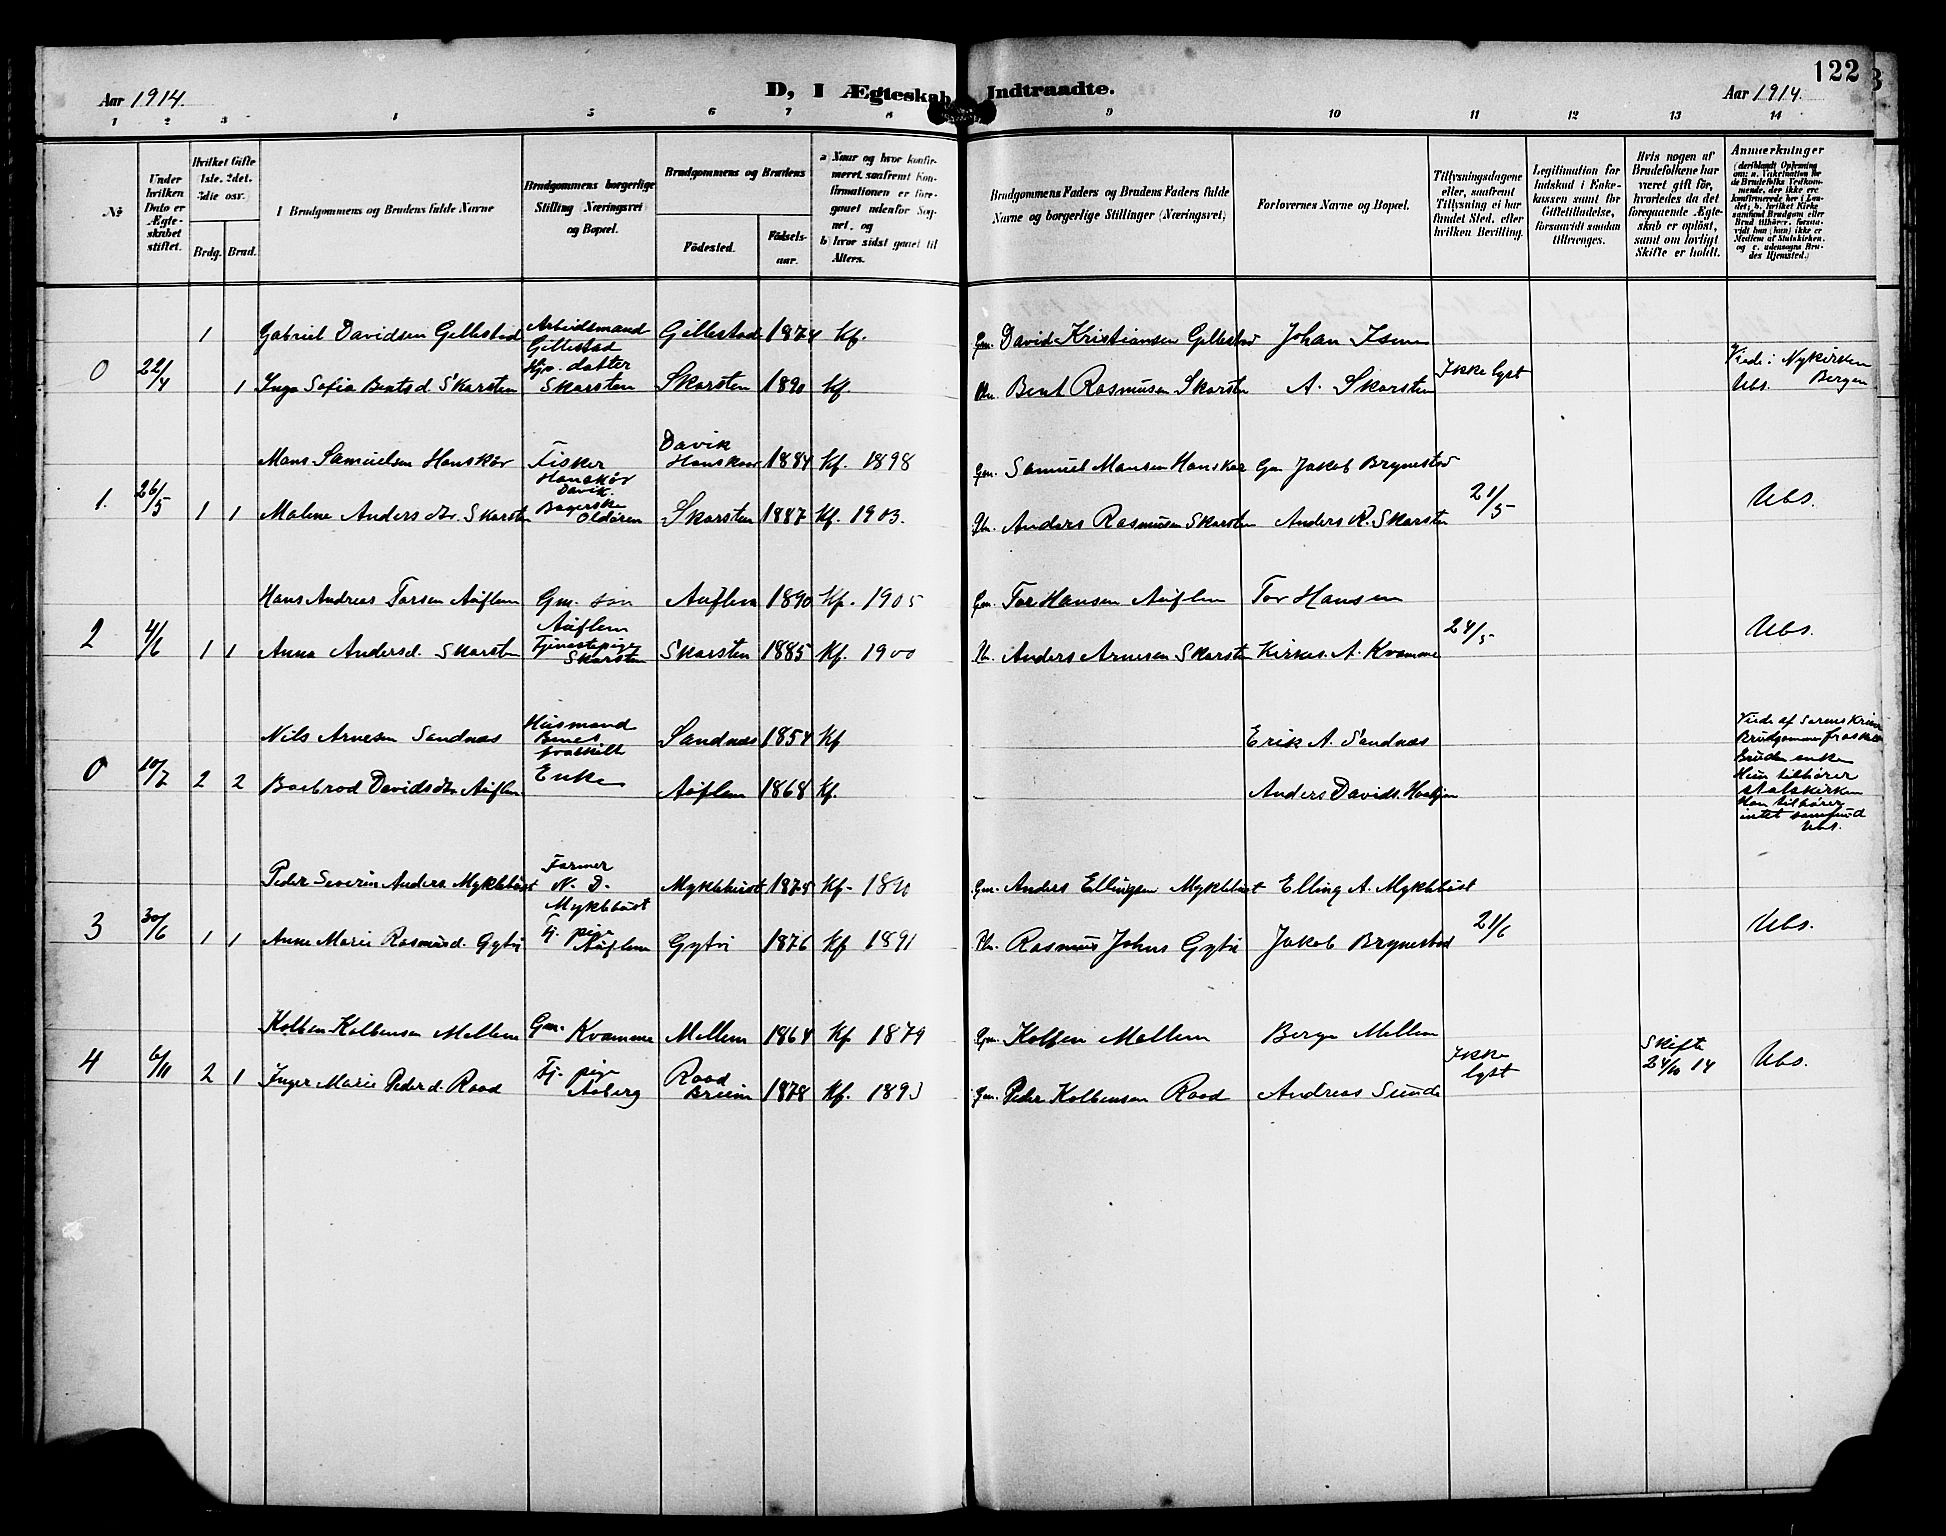 122
Aar 1914.
D, I Ægteskab Indtraadte.
Aar 1914.
1 2 3 4 5 6 7 8 9 10 11 12 13 14
№
Under hvilken Dato er Ægteskabet stiftet.
Hvilket Gifte (1ste. 2det. 3die osv.)
Brdg. Brud.
I Brudgommens og Brudens fulde Navne
Brudgommens borgerlige Stilling (Næringsvei) og Bopæl.
Brudgommens og Brudens
Födested.
Födselsaar.
a) Naar og hvor konfirmeret, saafremt Konfirmationen er foregaaet udenfor Sognet, og
b) hvor sidst gaaet til Alters.
Brudgommens Faders og Brudens Faders fulde Navne og borgerlige Stillinger (Næringsvei)
Forlovernes Navne og Bopæl.
Tillysningsdagene eller, saafremt Tillysning ei har fundet Sted, efter hvilken Bevilling.
Legitimation for Indskud i Enkekassen samt for Giftetilladelse, forsaavidt saadan tiltrænges.
Hvis nogen af Brudefolkene har været gift för, hvorledes da det foregaaende Ægteskab er oplöst, samt om lovligt Skifte er holdt.
Anmærkninger
1 Gabriel Davidsen Gillestad Arbeidsmand Gillestad 1874 Kf. Gm. David Kristiansen Gillestad Johan
Gillestad
0 22/4 1 Inga Sofia Bentsd. Skarsten datter Skarsten Skarsten 1890 Kf. Bent Rasmusen Skarsten A. Skarsten Ikke lyst Viede i Nykirken Bergen Ubs.
Mons Samuelsen Honskår Fisker Davik Honskaar 1884 Kf. 1898 Gm. Samuel Monsen Honskar Gm Jakob Brynestad
Honskår Davik.
1. 26/5 1 1 Malene Anders dtr. Skarsten Bagerske Oldören Skarsten 1887 Kf. 1903. Anders Rasmusen Skarsten Anders R. Skarsten 21/5 Ubs.
Hans Andreas Torsen Auflem Gm. sön Auflem 1890 Kf. 1905 Gm. Tor Hansen Auflem Tor Hansen
Auflem
2 4/6 1 1 Anna Andersd. Skarsten Tjenestepige Skarsten Skarsten 1885 Kf. 1900 Anders Arnesen Skarsten Kirkes. A. Kvamme 24/5 Ubs.
Nils Arnesen Sandnæs Husmand Sandnæs 1854 Kf Erik A. Sandnæs
fraskilt
0 10/7 2 2 Davidsdtr Auflem Enke Auflem 1868 Kf. - Anders Davids.
Viede af Sorenskriver
Brudgommen fraskilt
Bruden enke
Hun tilhører
statskirken
Han tilhører
intet samfund
Ubs.
Peder Severin Anders. Myklebust Farmer N. D. Myklebust 1875 Kf. 1890 Gm. Anders Ellingsen Myklebust Elling A. Myklebust
Myklebust
3 30/6 1 1 Anne Marie Rasmusd. Gytri Tj. pige Auflem Gytri 1876 Kf 1891 Rasmus Johns Gytri Jakob Brynestad 21/6 Ubs.
Kolben Kolbensen Mellem Gm. Kvamme Mellem 1864 Kf 1879 Gm. Kolben Mellem Berge Mellem
4 6/11 2 1 Inger Marie Peder d. Raad Tj. pige Aaberg Raad Breim 1878 Kf. 1893 Gm. Peder Kolbensen Raad Andreas Sunde Ikke lyst Skifte 24/10 14 Ubs.